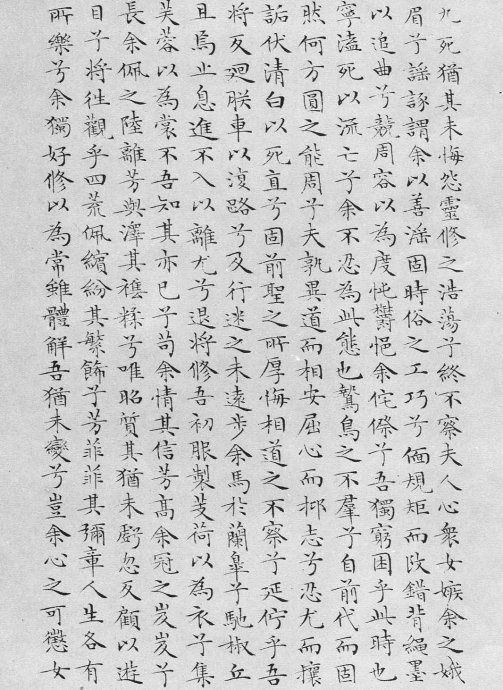 九死猶其未悔怨靈修之浩蕩兮終不察夫人心衆女嫉余之娥
眉兮謡諑謂余以善滛固時俗之工巧兮偭規矩而改錯背繩墨
以追曲兮競周容以為度忳鬱悒余侘傺兮吾獨窮困乎此時也
寧溘死以流亡兮余不忍為此態也鷙鳥之不羣兮自前代而固
然何方圓之能周兮夫孰異道而相安屈心而抑志兮忍尤而攘
詬伏清白以死直兮固前聖之所厚悔相道之不察兮延佇乎吾
將反迴朕車以復路兮及行迷之未遠步余馬於蘭皐兮馳椒丘
且焉止息進不入以離尤兮退將修吾初服製芰荷以為衣兮集
芙蓉以為裳不吾知其亦已兮苟余情其信芳高余冠之岌岌兮
長余佩之陸離芳與澤其雜糅兮唯昭質其猶未虧忽反顧以遊
目兮將往觀乎四荒佩繽紛其繁飾兮芳菲菲其彌章人生各有
所樂兮余獨好修以為常雖體解吾猶未變兮豈余心之可懲女